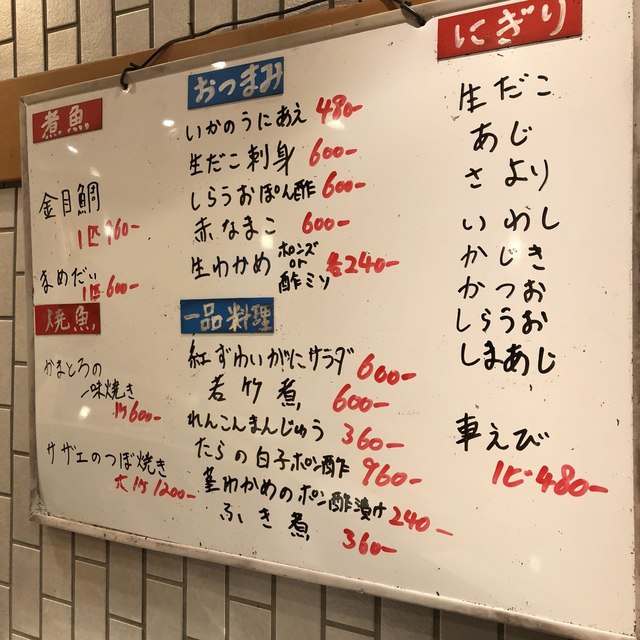 煮魚
金目鯛
1匹 960-
なめだい
1匹 600-
焼魚
かまとろの
一味焼き
1ケ 600-
サザエのつぼ焼き
大1ケ 1200-
おつまみ
いかのうにあえ 480-
生だこ刺身 600-
しらうおぽん酢 600-
赤なまこ 600-
生わかめ ポンズ or 酢ミソ 各240-
一品料理
紅ずわいがにサラダ 600-
若竹煮 600-
れんこんまんじゅう 360-
たらの白子ポン酢 960-
茎わかめのポン酢漬け 240-
ふき煮 360-
にぎり
生だこ
あじ
さより
いわし
かじき
かつお
しらうお
しまあじ
車えび
1ピ-480-